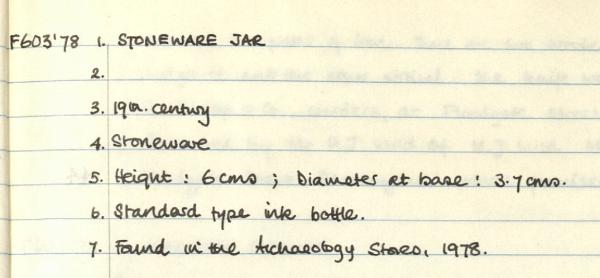 F603'78 1. STONEWARE JAR
2.
3. 19th. century
4. Stoneware
5. Height : 6 cms ; Diameter at base : 3.7 cms.
6. Standard type ink bottle.
7. Found in the Archaeology Stores, 1978.